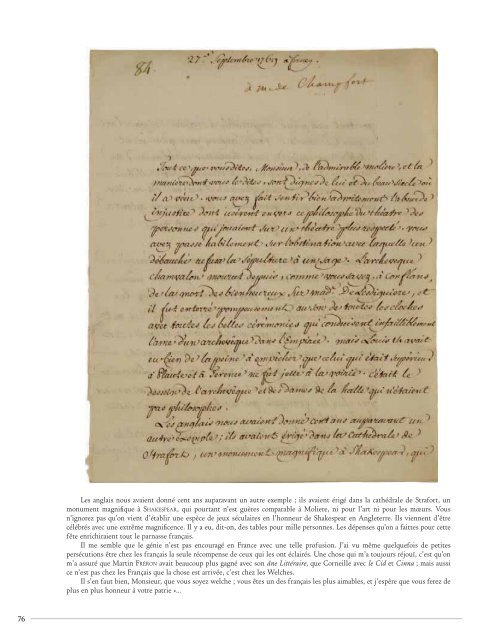 84.
27.e Septembre 1769 à ferney.
à m. de Champfort
Tout ce que vous dites, Monsieur, de l'admirable moliere, et la
maniere dont vous le dites, sont dignes de lui et du beau siecle où
il a vécu. vous avez fait sentir bien adroitement l'absurde
injustice dont usèrent envers ce philosophe du théatre des
personnes qui jouaient sur un théatre plus respecté. vous
avez passé habilement sur l'obstination avec laquelle un
débauché refusa la sépulture à un sage. L'archevêque
chamvalon mourut depuis, comme vous savez, à Conflans,
de la mort des bienheureux sur mad.e De Lesdiguiere, et
il fut enterré pompeusement au son de toutes les cloches
avec toutes les belles cérémonies qui conduisent infailliblement
l'ame d'un archevêque dans l'Empirée. mais Louis 14 avait
eu bien de la peine à empêcher que celui qui était supérieur
à Plaute et à Terence ne fut jetté à la voirie. c'était le
dessein de l'archevêque et des dames de la halle qui n'étaient
pas philosophes.
Les anglais nous avaient donné cent ans auparavant un
autre exemple ; ils avaient érigé dans la cathédrale de
Strafort, un monument magnifique à Shakespear, qui
Les anglais nous avaient donné cent ans auparavant un autre exemple ; ils avaient érigé dans la cathédrale de Strafort, un
monument magnifique à SHAKESPEAR, qui pourtant n'est guères comparable à Moliere, ni pour l'art ni pour les mœurs. Vous
n'ignorez pas qu'on vient d'établir une espèce de jeux séculaires en l'honneur de Shakespear en Angleterre. Ils viennent d'être
célébrés avec une extrême magnificence. Il y a eu, dit-on, des tables pour mille personnes. Les dépenses qu'on a faittes pour cette
fête enrichiraient tout le parnasse français.
Il me semble que le génie n'est pas encouragé en France avec une telle profusion. J'ai vu même quelquefois de petites
persécutions être chez les français la seule récompense de ceux qui les ont éclairés. Une chose qui m'a toujours réjouï, c'est qu'on
m'a assuré que Martin FRÉRON avait beaucoup plus gagné avec son âne Littéraire, que Corneille avec le Cid et Cinna ; mais aussi
ce n'est pas chez les Français que la chose est arrivée, c'est chez les Welches.
Il s'en faut bien, Monsieur, que vous soyez welche ; vous êtes un des français les plus aimables, et j'espère que vous ferez de
plus en plus honneur à votre patrie »...
76